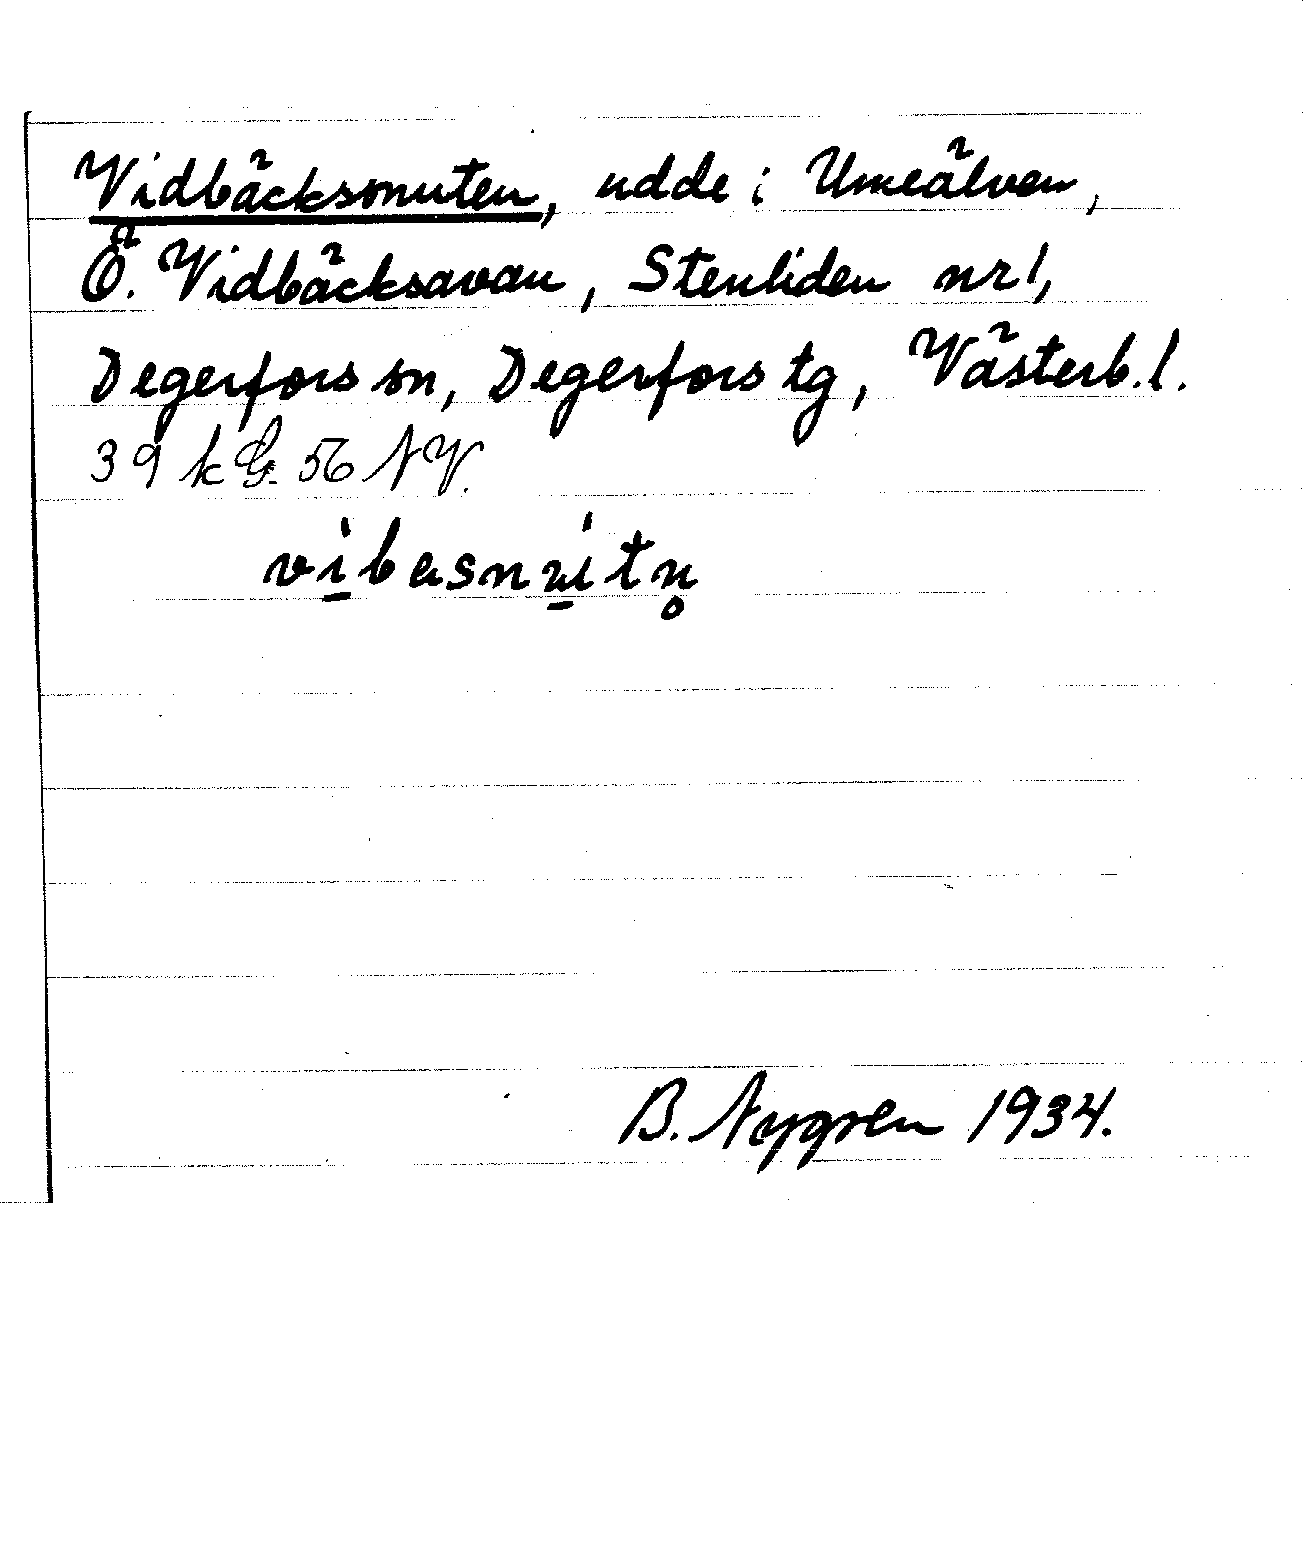 Vidbäcksnuten, udde i Umeälven,
Ö. Vidbäcksavan, Stenliden nr 1,
Degerfors sn, Degerfors tg, Västerb. l.
39 k G. 56 NV.
vi̲basnu̲itn̥
B. Nygren 1934.